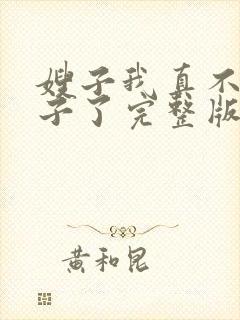 嫂子我真不
子了完整版
黄和昆